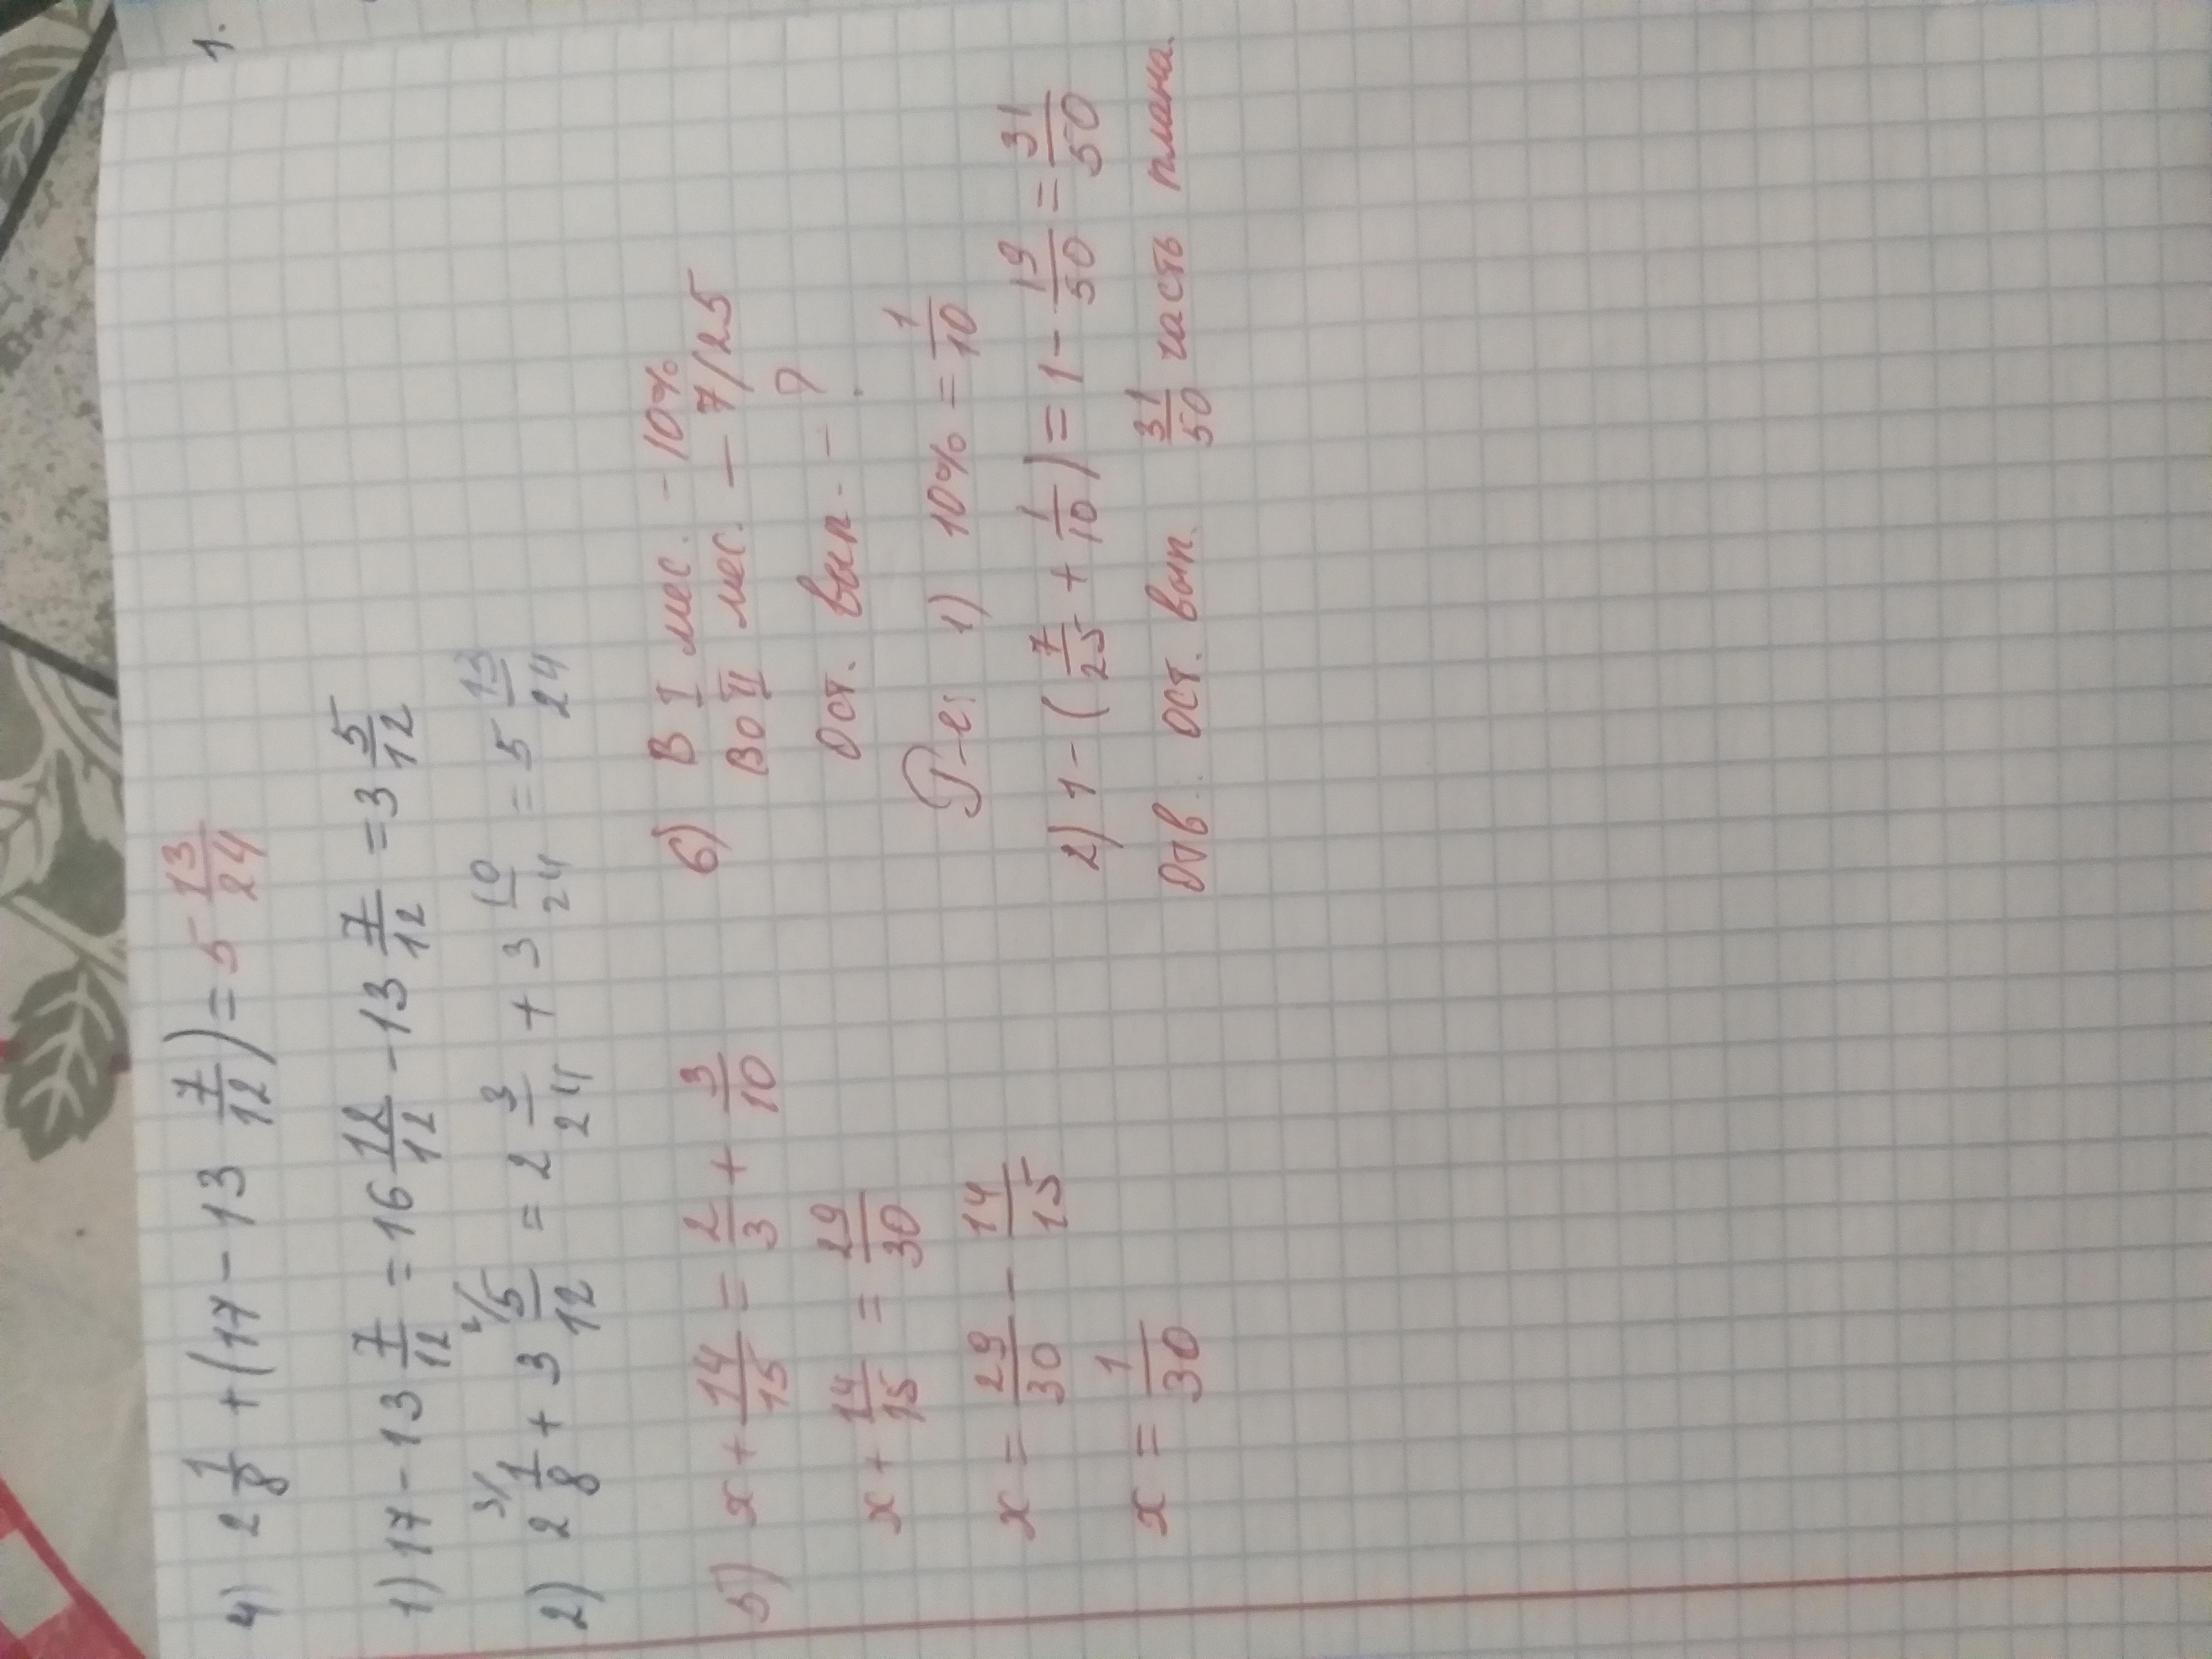 1.
4) 2 1/8 + (17 - 13 7/12) = 5 13/24
1) 17 - 13 7/12 = 16 12/12 - 13 7/12 = 3 5/12
2) 2 3/ 1/8 + 3 2/ 5/12 = 2 3/24 + 3 10/24 = 5 13/24
5) x + 14/15 = 2/3 + 3/10
x + 14/15 = 29/30
x = 29/30 - 14/15
x = 1/30
6) В I мес. - 10%
Во II мес. - 7/25
Ост. вып. - ?
Р-е: 1) 10% = 1/10
2) 1 - (7/25 + 1/10) = 1 - 19/50 = 31/50
Отв.: ост. вып. 31/50 часть плана.